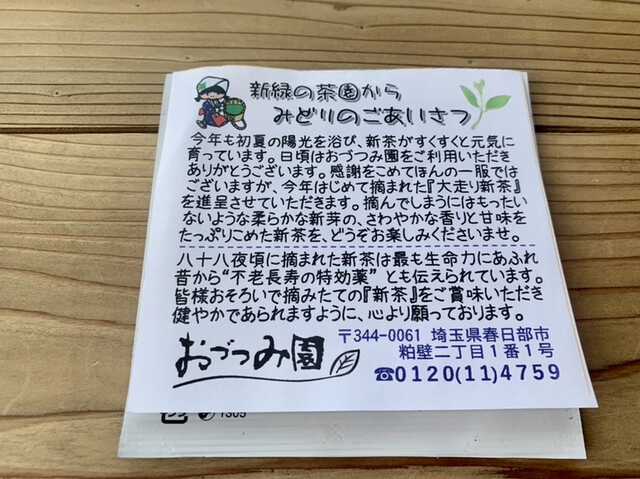 新緑の茶園から
みどりのごあいさつ
今年も初夏の陽光を浴び、新茶がすくすくと元気に
育っています。日頃はおづつみ園をご利用いただき
ありがとうございます。感謝をこめてほんの一服では
ございますが、今年はじめて摘まれた『大走り新茶』
を進呈させていただきます。摘んでしまうにはもったい
ないような柔らかな新芽の、さわやかな香りと甘味を
たっぷりこめた新茶を、どうぞお楽しみくださいませ。
八十八夜頃に摘まれた新茶は最も生命力にあふれ
昔から“不老長寿の特効薬”とも伝えられています。
皆様おそろいで摘みたての『新茶』をご賞味いただき
健やかであられますように、心より願っております。
おづつみ園
〒344-0061 埼玉県春日部市
粕壁二丁目1番1号
☎0120(11)4759
1305